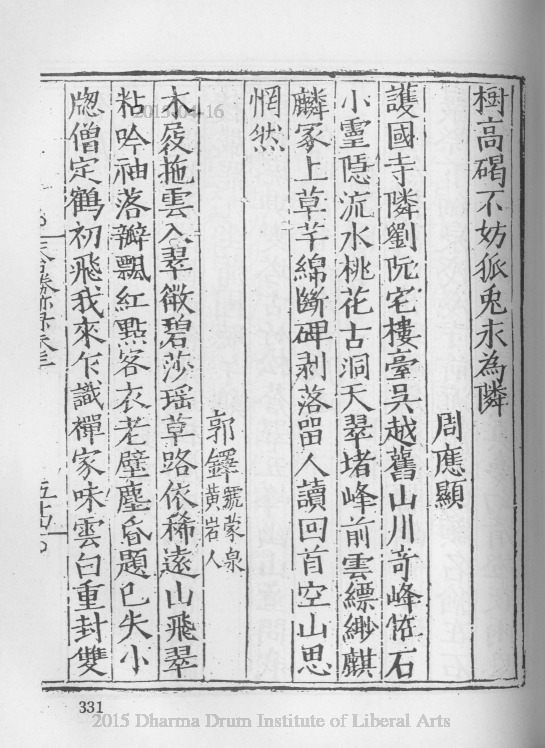 樹高碣不妨狐兎未為隣
周應顯
護國寺隣劉阮宅樓臺吴越舊山川奇峰恠石
小靈隱流水桃花古洞天翠堵峰前雲縹緲麒
麟冢上草芊綿斷碑剥落畱人讀回首空山思
惘然
郭鐸號蒙泉黃岩人
木屐拖雲入翠微碧莎瑶草路依稀遠山飛翠
粘吟袖落瓣飄紅㸃客衣老壁塵昏題已失小
牕僧定鶴初飛我來乍識禪家味雲白重封雙
天台勝蹟录卷三 五十四
331
2015-04-16
2015 Dharma Drum Institute of Liberal Arts